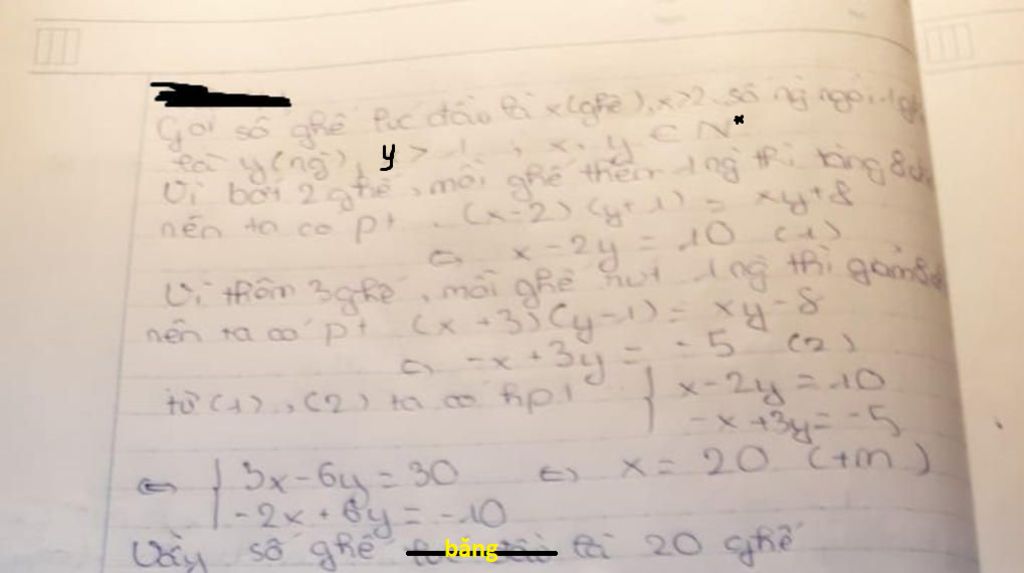 Gọi số ghế lúc đầu là x (ghế), x>2. số ng ngồi 1 ghế
là y (ng), y > 1, x, y ∈ N*
Vì bớt 2 ghế, mỗi ghế thêm 1 ng thì tăng 8
nên ta có pt . (x-2) (y+1) = xy+8
⇔ x-2y = 10 (1)
Vì thêm 3 ghế, mỗi ghế 1 ng thì giảm 8
nên ta có pt (x+3)(y-1) = xy-8
⇔ -x+3y = -5 (2)
từ (1), (2) ta có hpt { x-2y = 10
-x+3y = -5
⇔ { 3x-6y = 30 ⇔ x = 20 (tm)
-2x+6y = -10
Vậy số ghế băng là 20 ghế